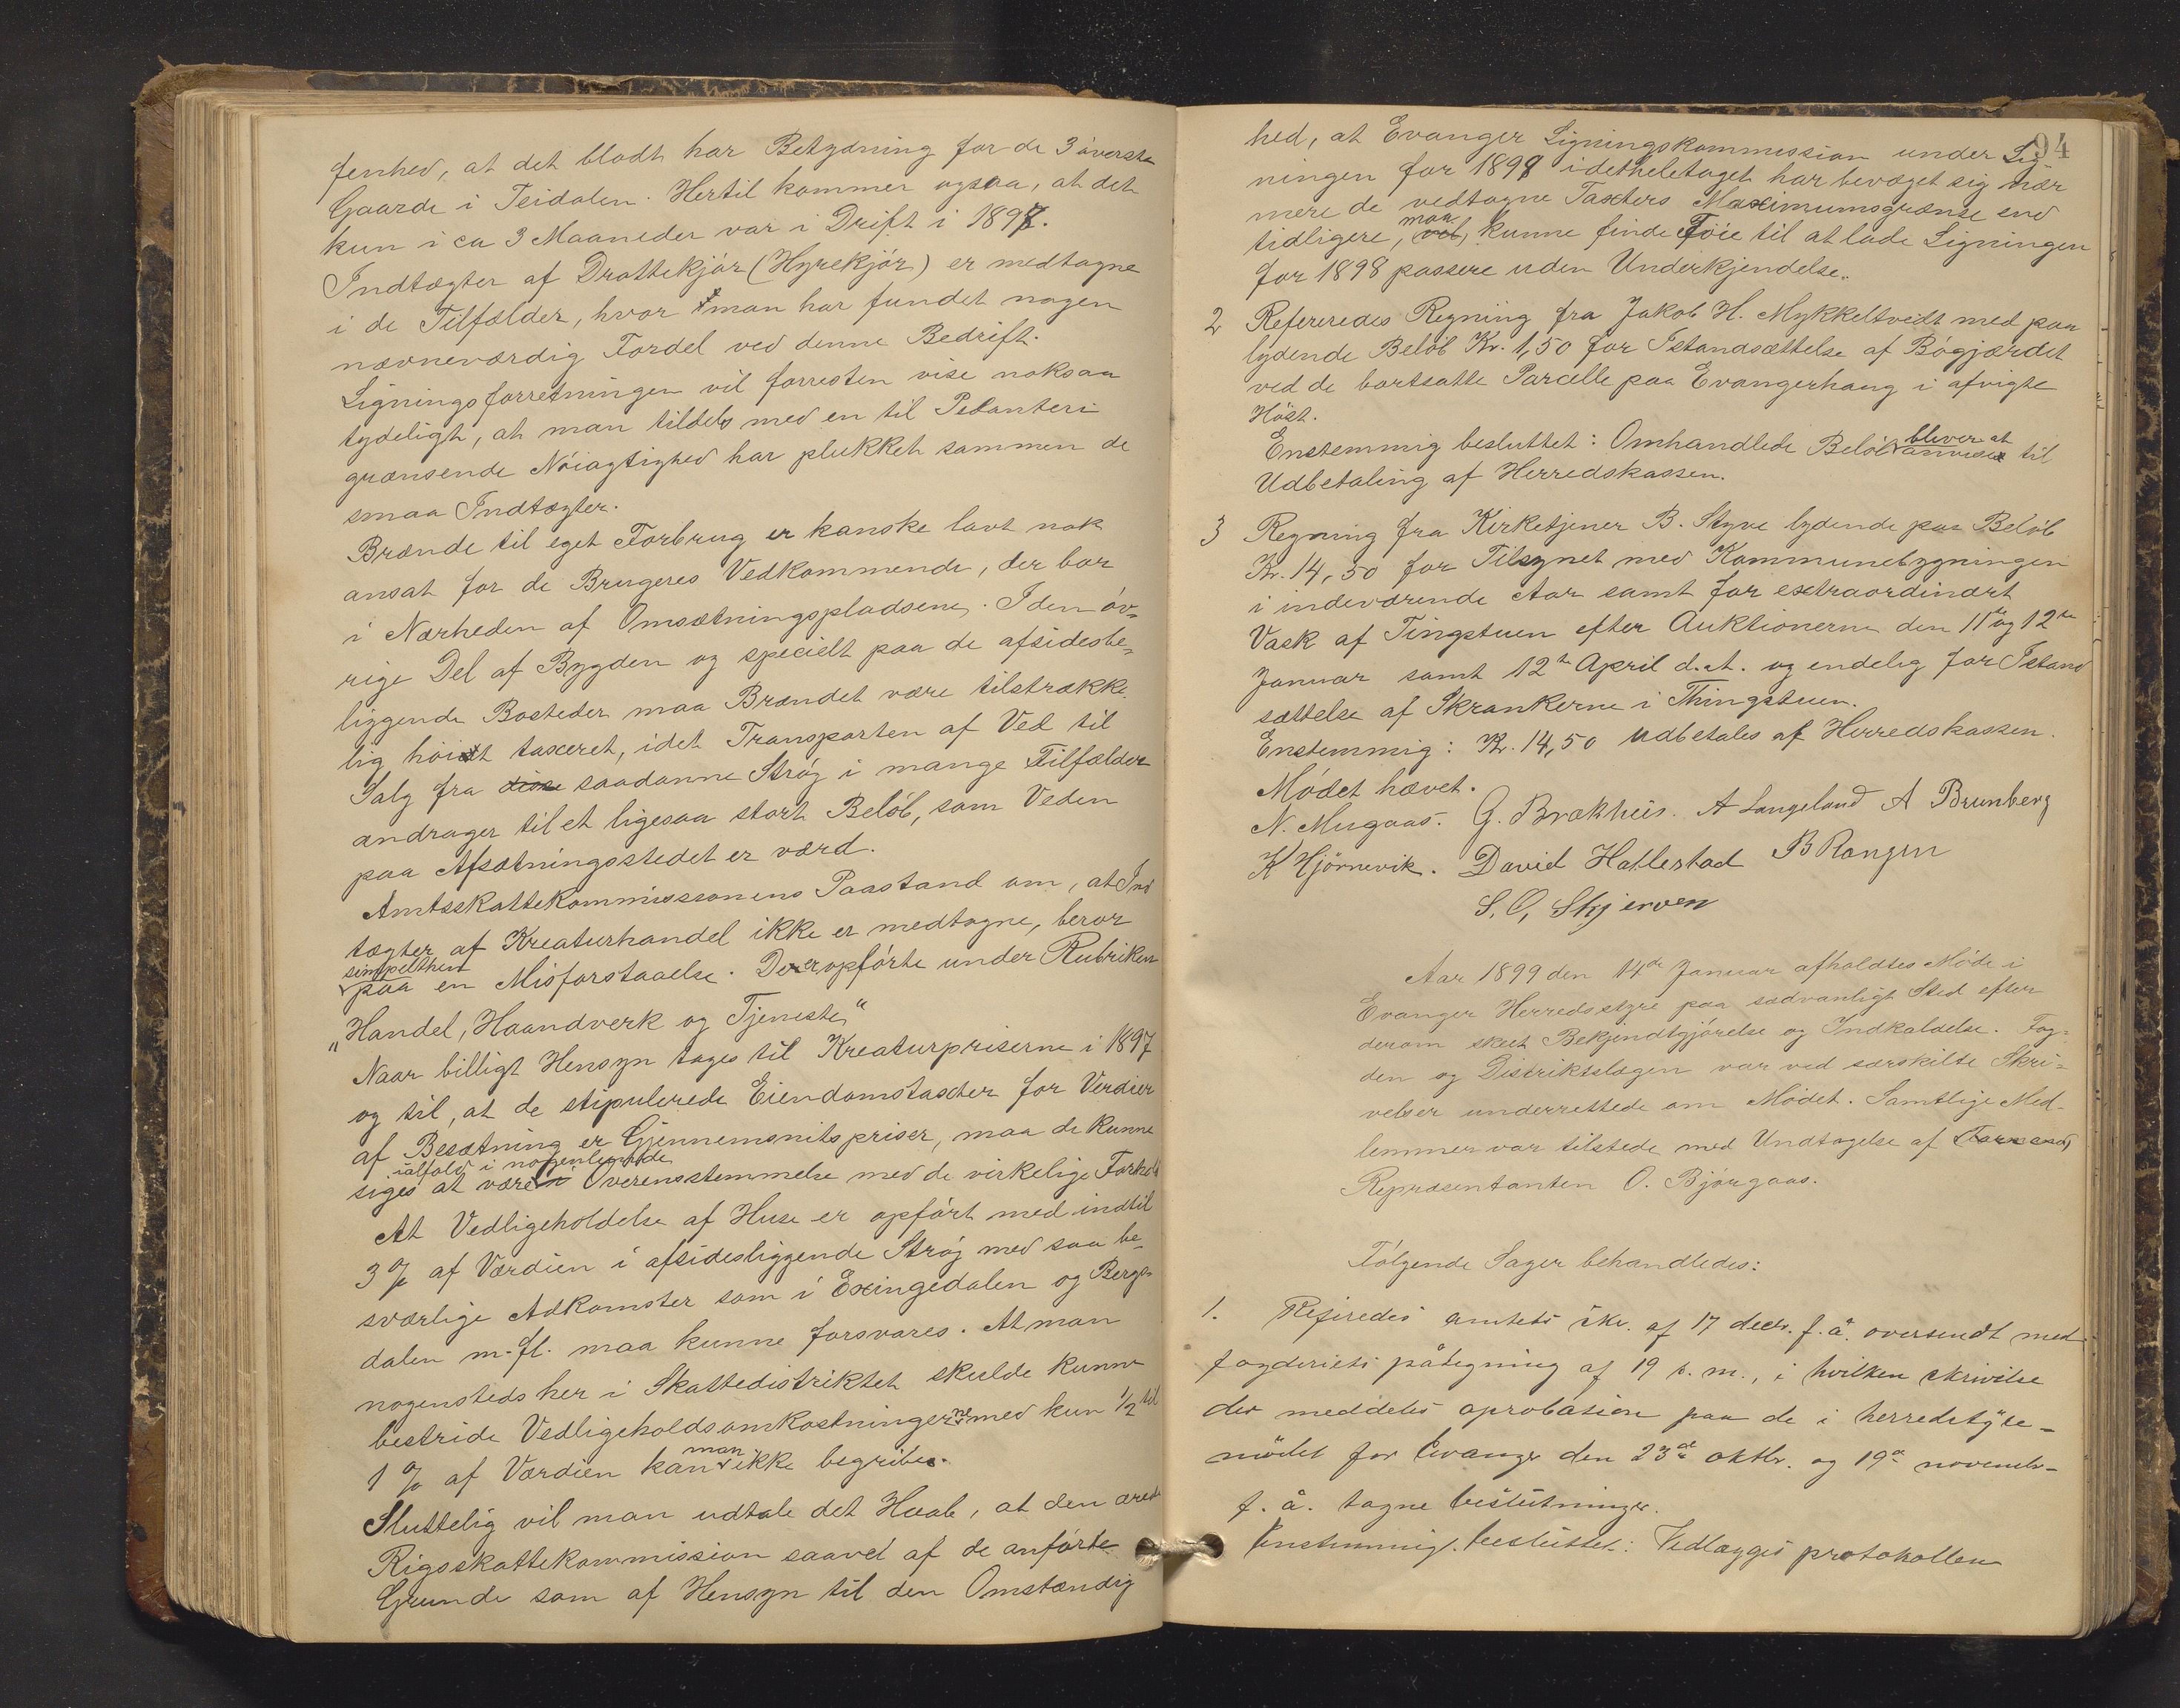 fenhed, at det blodt har Betydning for de 3 øverste
Gaarde i Teidalen. Hertil kommer ogsaa, at det
kun i ca 3 Maaneder var i Drift i 1897.
Indtægter af Drættekjør (Hyrekjør) er medtagne
i de Tilfælder, hvor man har fundet nogen
nævneværdig Fordel ved denne Bedrift.
Ligningsforretningen vil forresten vise noksaa
tydeligt, at man tildels med en til Petanteri
grænsende Nøiagtighed har plukket sammen de
smaa Indtægter.
Brænde til eget Forbrug er kanske lavt nok
ansat for de Brugeres Vedkommende, der bor
i Nærheden af Omsætningspladsene. I den øv-
rige Del af Bygden og specielt paa de afsidesbe-
liggende Bosteder maa Brændet være tilstrække-
lig høit taxeret, idet Transporten af Ved til
Salg fra saadanne Strøg i mange Tilfælder
andrager til et ligesaa stort Beløb, som Veden
paa Afsætningsstedet er værd.
Amtsskattekommissionens Paastand om, at Ind
tægter af Kreaturhandel ikke er medtagne, beror
simpelthen
paa en Misforstaaelse. De er opførte under Rubriken
"Handel, Haandverk og Tjeneste"
Naar billigt Hensyn tages til Kreaturpriserne i 1897
og til, at de stipulerede Eiendomstaxter for Verdier
af Besætning er Gjennemsnitspriser, maa de kunne
ialfald i nogenlunde
siges at være i Overensstemmelse med de virkelige Forhold
At Vedligeholdelse af Huse er opført med indtil
3 % af Værdien i afsidesliggende Strøg med saa be-
sværlige Adkomster som i Exingedalen og Berge
dalen m. fl. maa kunne forsvares. At man
nogensteds her i Skattedistriktet skulde kunne
bestride Vedligeholdsomkostningerne med kun 1/2 til
1 % af Værdien kan man ikke begribe.
Sluttelig vil man udtale det Haab, at den ærede
Rigsskattekommission saavel af de anførte
Grunde som af Hensyn til den Omstændig
94
hed, at Evanger Ligningskommission under Lig-
ningen for 1898 idetheletaget har bevæget sig nær
mere de vedtagne Taxters Maximumsgrænse end
tidligere, maa kunne finde Føie til at lade Ligningen
for 1898 passere uden Underkjendelse.
2 Refereredes Regning fra Jakob H. Mykkeltvedt med paa
lydende Beløb Kr. 1,50 for Istandsættelse af Bøgjærdet
ved de bortsatte Parcelle paa Evangerhaug i afvigte
Høst.
Enstemmig besluttet: Omhandlede Beløb bliver at anvise til
Udbetaling af Herredskassen.
3 Regning fra Kirketjener B. Styve lydende paa Beløb
Kr. 14,50 for Tilsynet med Kommunebygningen
i indeværende Aar samt for extraordinært
Vask af Tingstuen efter Auktionerne den 11te og 12te
Januar samt 12te April d. A. og endelig for Istand
sættelse af Skrankerne i Thingstuen.
Enstemmig: Kr. 14,50 udbetales af Herredskassen.
Mødet hævet.
N. Mugaas. G. Brækhus. A Langeland A Brunberg
K Hjørnevik. David Hallestad B Rongen
S. O. Skjerven
Aar 1899 den 14de Januar afholdtes Møde i
Evanger Herredsstyre paa sædvanligt Sted efter
derom skeet Bekjendtgjørelse og Indkaldelse. Fog-
den og Distriktslægen var ved særskilte Skri-
velser underrettede om Mødet. Samtlige Med-
lemmer var tilstede med Undtagelse af
Repræsentanten O. Bjørgaas.
Følgende Sager behandledes:
1. Refiredes amtets skr. af 17 decbr. f. å. oversendt med
fogderiets påtegning af 19 s. m., i hvilken skrivelse
der meddeles aprobasion paa de i herredstyre-
mødet for Evanger den 23de oktbr. og 19de novembr.
f. å. tagne beslutninger.
Enstemmig besluttet: Vedlægges protokollen